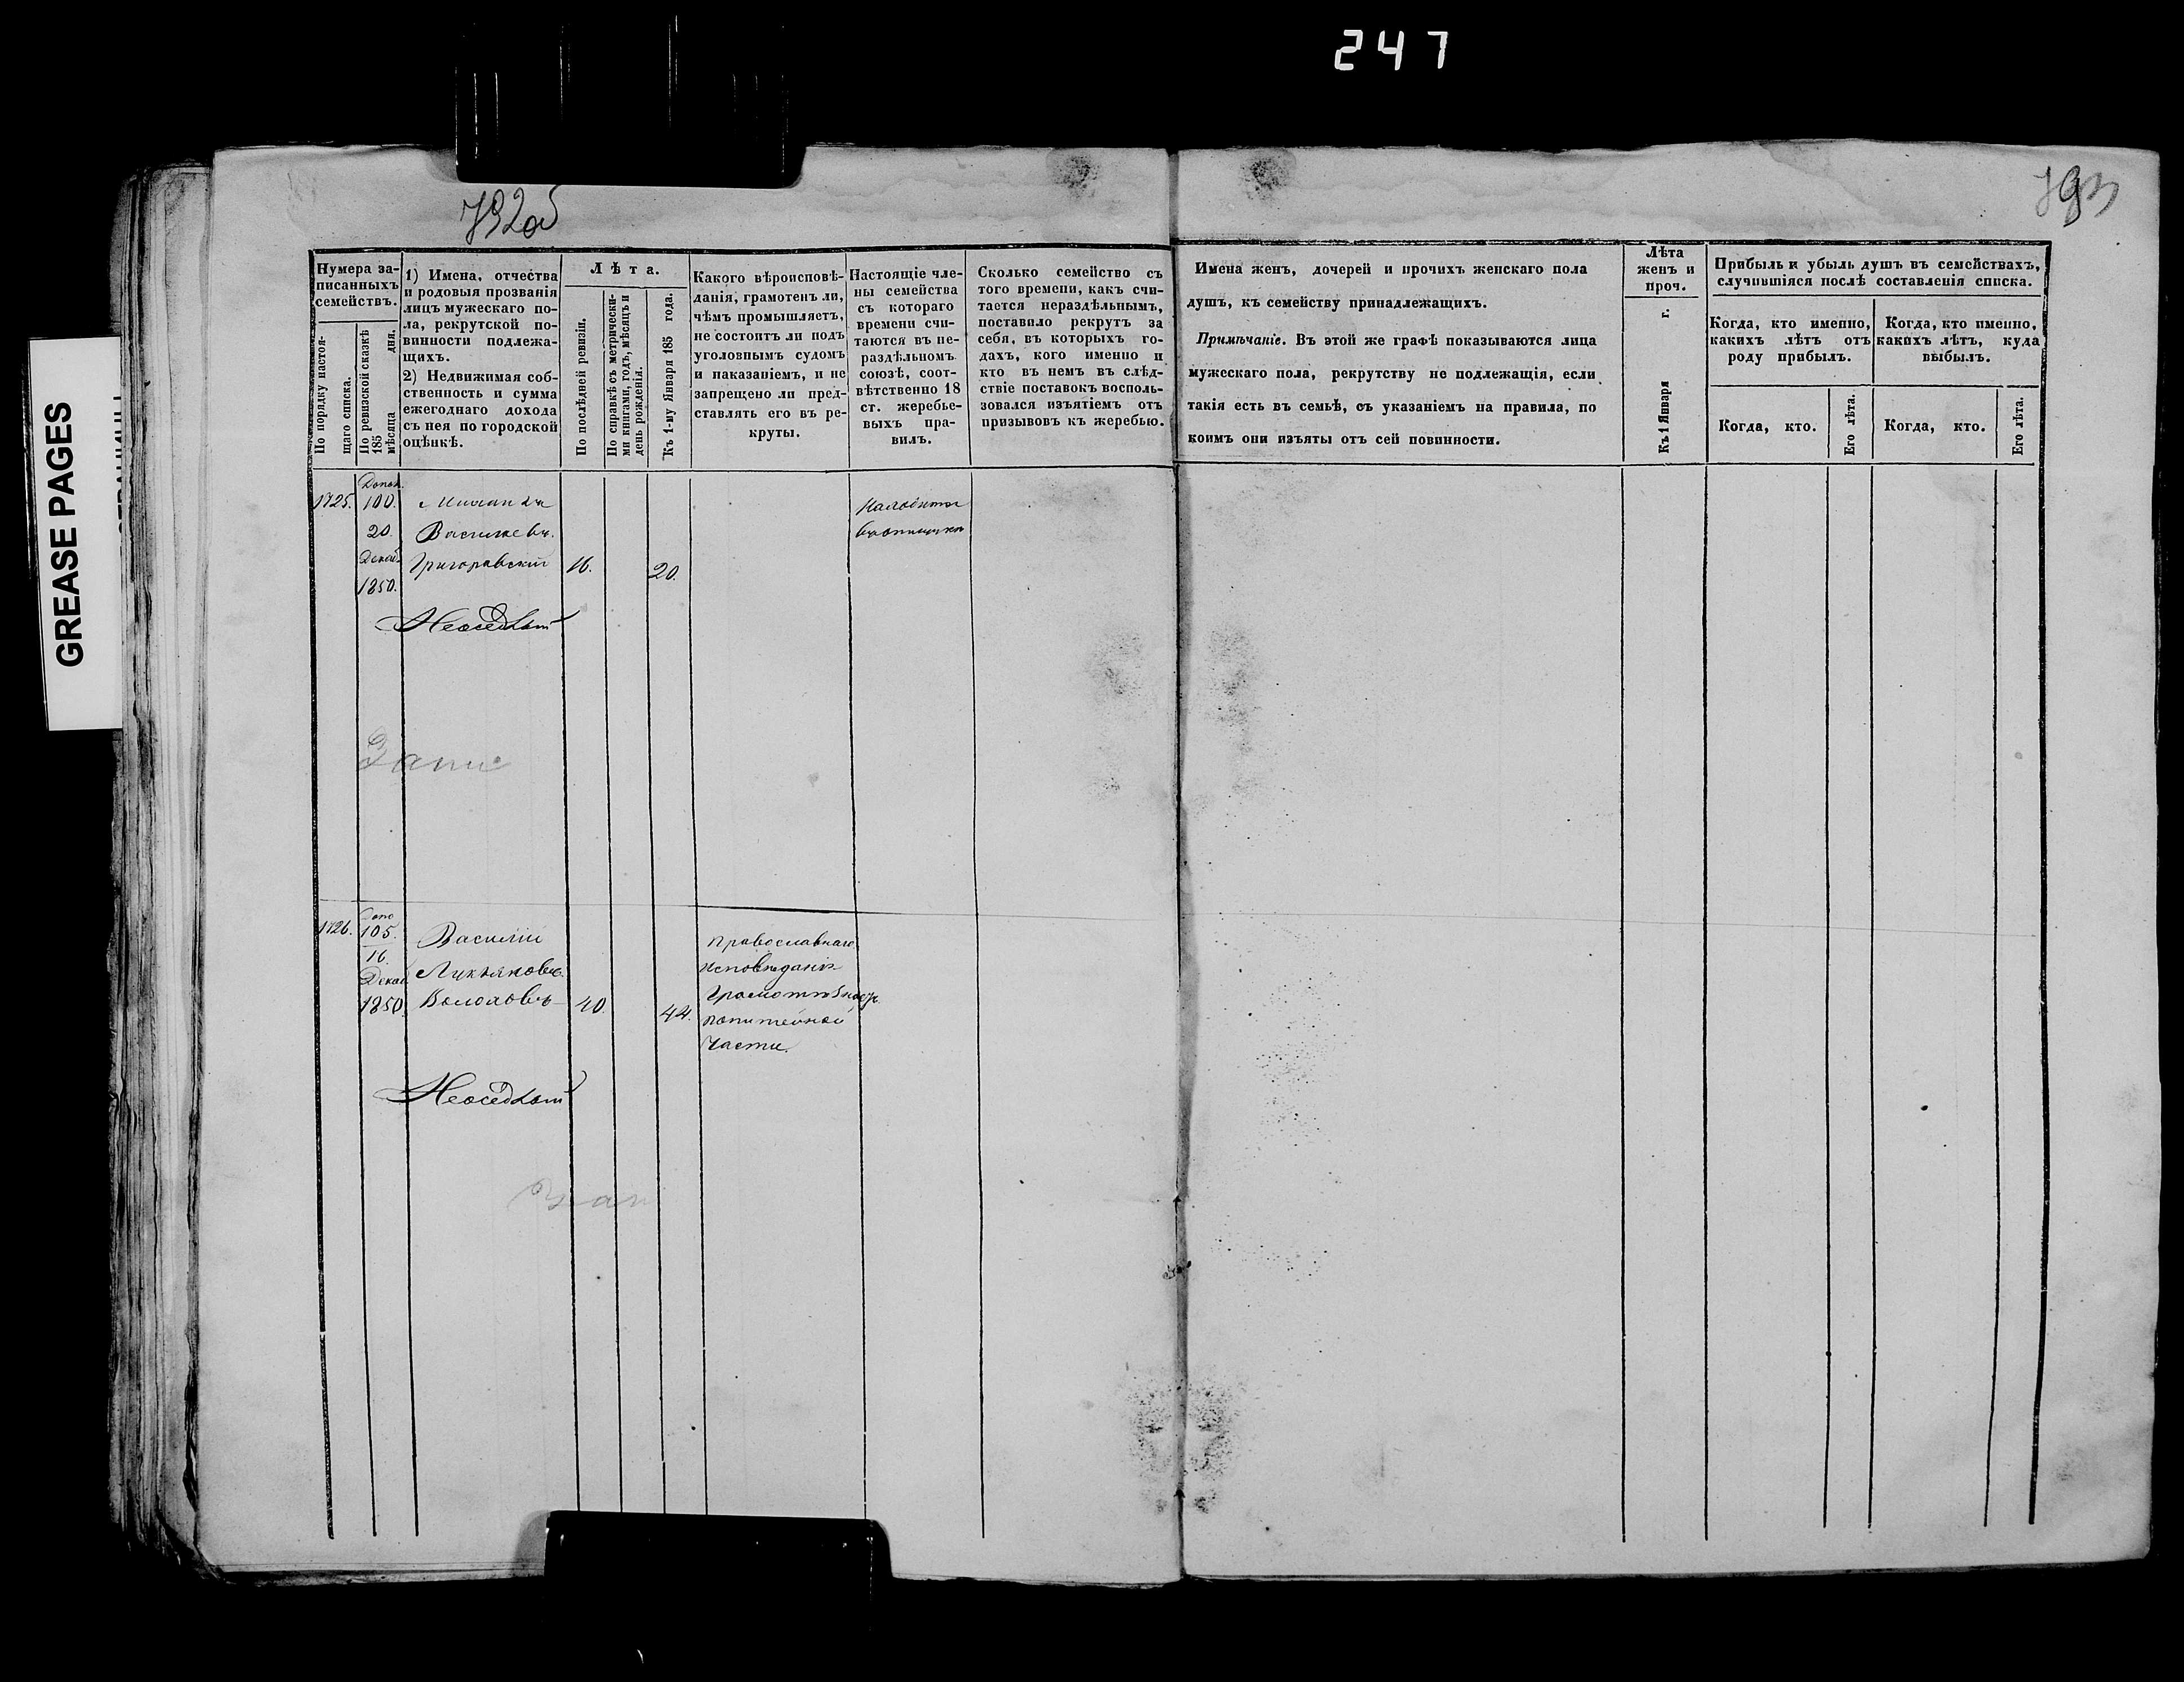 247
GREASE PAGES
792об
793
Нумера за-
писанныхъ
семействъ.
По порядку настоя-
щаго списка.
По ревизской сказкѣ
185 мѣсяца дня.
1) Имена, отчества
и родовыя прозванія
лицъ мужескаго по-
ла, рекрутской по-
винности подлежа-
щихъ.
2) Недвижимая соб-
ственность и сумма
ежегоднаго дохода
съ нея по городской
оцѣнкѣ.
Лѣта.
По послѣдней ревизіи.
По справкѣ съ метрически-
ми книгами, годъ, мѣсяцъ и
день рожденія.
Къ 1-му Января 185 года.
Какого вѣроисповѣ-
данія, грамотенъ ли,
чѣмъ промышляетъ,
не состоитъ ли подъ
уголовнымъ судомъ
и наказаніемъ, и не
запрещено ли пред-
ставлять его въ ре-
круты.
Настоящіе чле-
ны семейства
съ котораго
времени счи-
таются въ не-
раздѣльномъ
союзѣ, соот-
вѣтственно 18
ст. жеребье-
выхъ пра-
вилъ.
Сколько семейство съ
того времени, какъ счи-
тается нераздѣльнымъ,
поставило рекрутъ за
себя, въ которыхъ го-
дахъ, кого именно и
кто въ немъ въ слѣд-
ствіе поставокъ восполь-
зовался изъятіемъ отъ
призывовъ къ жеребью.
Имена женъ, дочерей и прочихъ женскаго пола
душъ, къ семейству принадлежащихъ.
Примѣчаніе. Въ этой же графѣ показываются лица
мужескаго пола, рекрутству не подлежащія, если
такія есть въ семьѣ, съ указаніемъ на правила, по
коимъ они изъяты отъ сей повинности.
Лѣта
женъ и
проч.
Къ 1 Января г.
Прибыль и убыль душъ въ семействахъ,
случившіяся послѣ составленія списка.
Когда, кто именно,
какихъ лѣтъ отъ
роду прибылъ.
Когда, кто именно,
какихъ лѣтъ, куда
выбылъ.
Когда, кто.
Его лѣта.
Когда, кто.
Его лѣта.
1725.
100.
20.
Декаб.
1850.
Василіевъ.
Григоровскій
16.
20.
Неоседлый
Запис
1726.
105.
16.
Декаб
1850.
Василій
Лукьяновъ.
40.
44.
Православнаго
исповѣданія
питейной
части.
Неоседлый